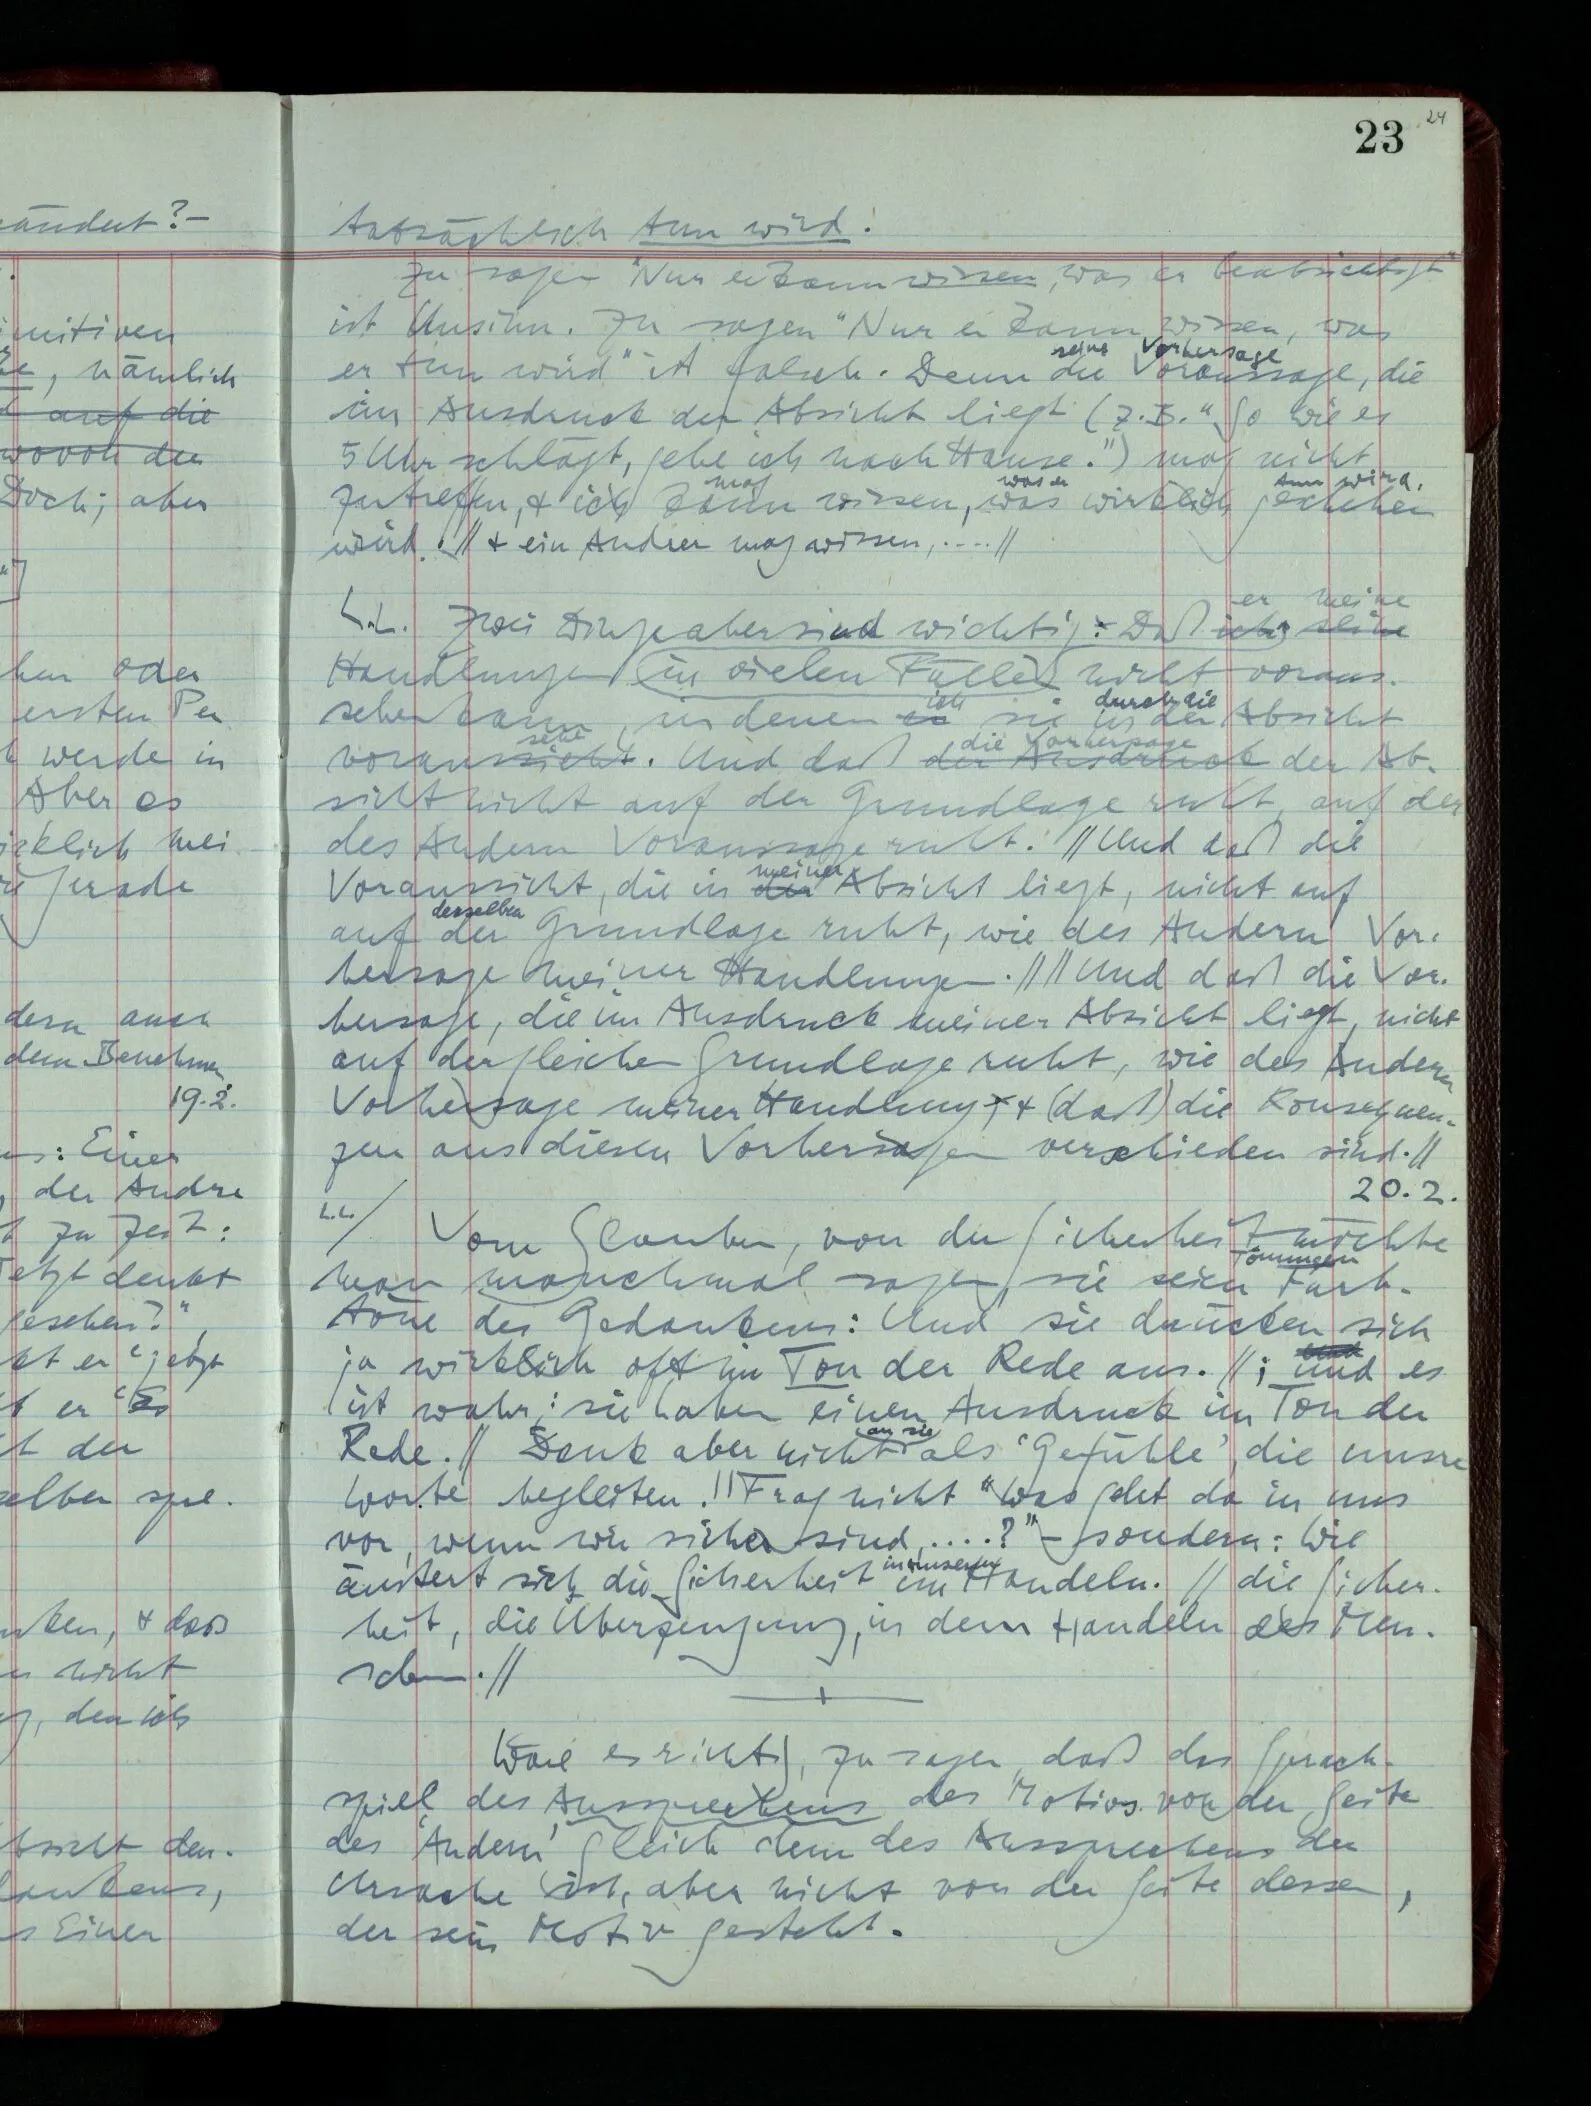 24
23
ändert? –
tatsächlich tun wird.
Zu sagen "Nur er kann wissen, was er beabsichtigt"
ist Unsinn. Zu sagen "Nur er kann wissen, was
er tun wird" ist falsch. Denn die Voraussage, die
seine Vorhersage
im Ausdruck der Absicht liegt (z.B. "So wie es
5 Uhr schlägt, gehe ich nach Hause.") mag nicht
zutreffen, & ich kann wissen, was wirklich geschehen
mag was er tun wird.
wird. // & ein Andrer mag wissen, .... //
Zwei Dinge aber sind wichtig: Daß ich seine
er meine
Handlungen in vielen Fällen nicht voraus-
sehen kann, in denen er sie in der Absicht
ich durch die
voraussieht. Und daß der Ausdruck der Ab-
sehe die Vorhersage
sicht nicht auf der Grundlage ruht, auf der
des Andern Voraussage ruht. // Und daß die
Voraussicht, die in der Absicht liegt, nicht auf
meiner
auf der Grundlage ruht, wie des Andern Vor-
derselben
hersage meiner Handlungen. // // Und daß die Vor-
hersage, die im Ausdruck meiner Absicht liegt, nicht
auf der gleichen Grundlage ruht, wie des Andern
Vorhersage meiner Handlung, & (daß) die Konsequen-
zen aus diesen Vorhersagen verschieden sind. //
20.2.
Vom Glauben, von der Sicherheit möchte
man manchmal sagen, sie seien Farb-
Tönungen
töne des Gedankens: Und sie drücken sich
ja wirklich oft im Ton der Rede aus. //; und es
ist wahr: sie haben einen Ausdruck im Ton der
Rede. // Denk aber nicht als 'Gefühle', die unsre
an sie
Worte begleiten. // Frag nicht "Was geht da in uns
vor, wenn wir sicher sind, ....?" – sondern: Wie
äußert sich die Sicherheit im Handeln. // die Sicher-
in unserm
heit, die Überzeugung, in dem Handeln des Men-
schen. //
Wäre es richtig, zu sagen, daß das Sprach-
spiel des Aussprechens des Motivs von der Seite
des 'Andern' gleich dem des Aussprechens der
Ursache ist, aber nicht von der Seite dessen,
der sein Motiv gesteht.
, nämlich
auf die
wovon der
Doch; aber
oder
ersten Per
werde in
Aber es
gerade
dern auch
dem Benehmen
19.2.
: Einer
, der Andre
zu Zeit:
Jetzt denkt
gesehen?",
er "jetzt
er "Es
der
selber spie-
, & daß
nicht
, den ich
Absicht den-
s Einen